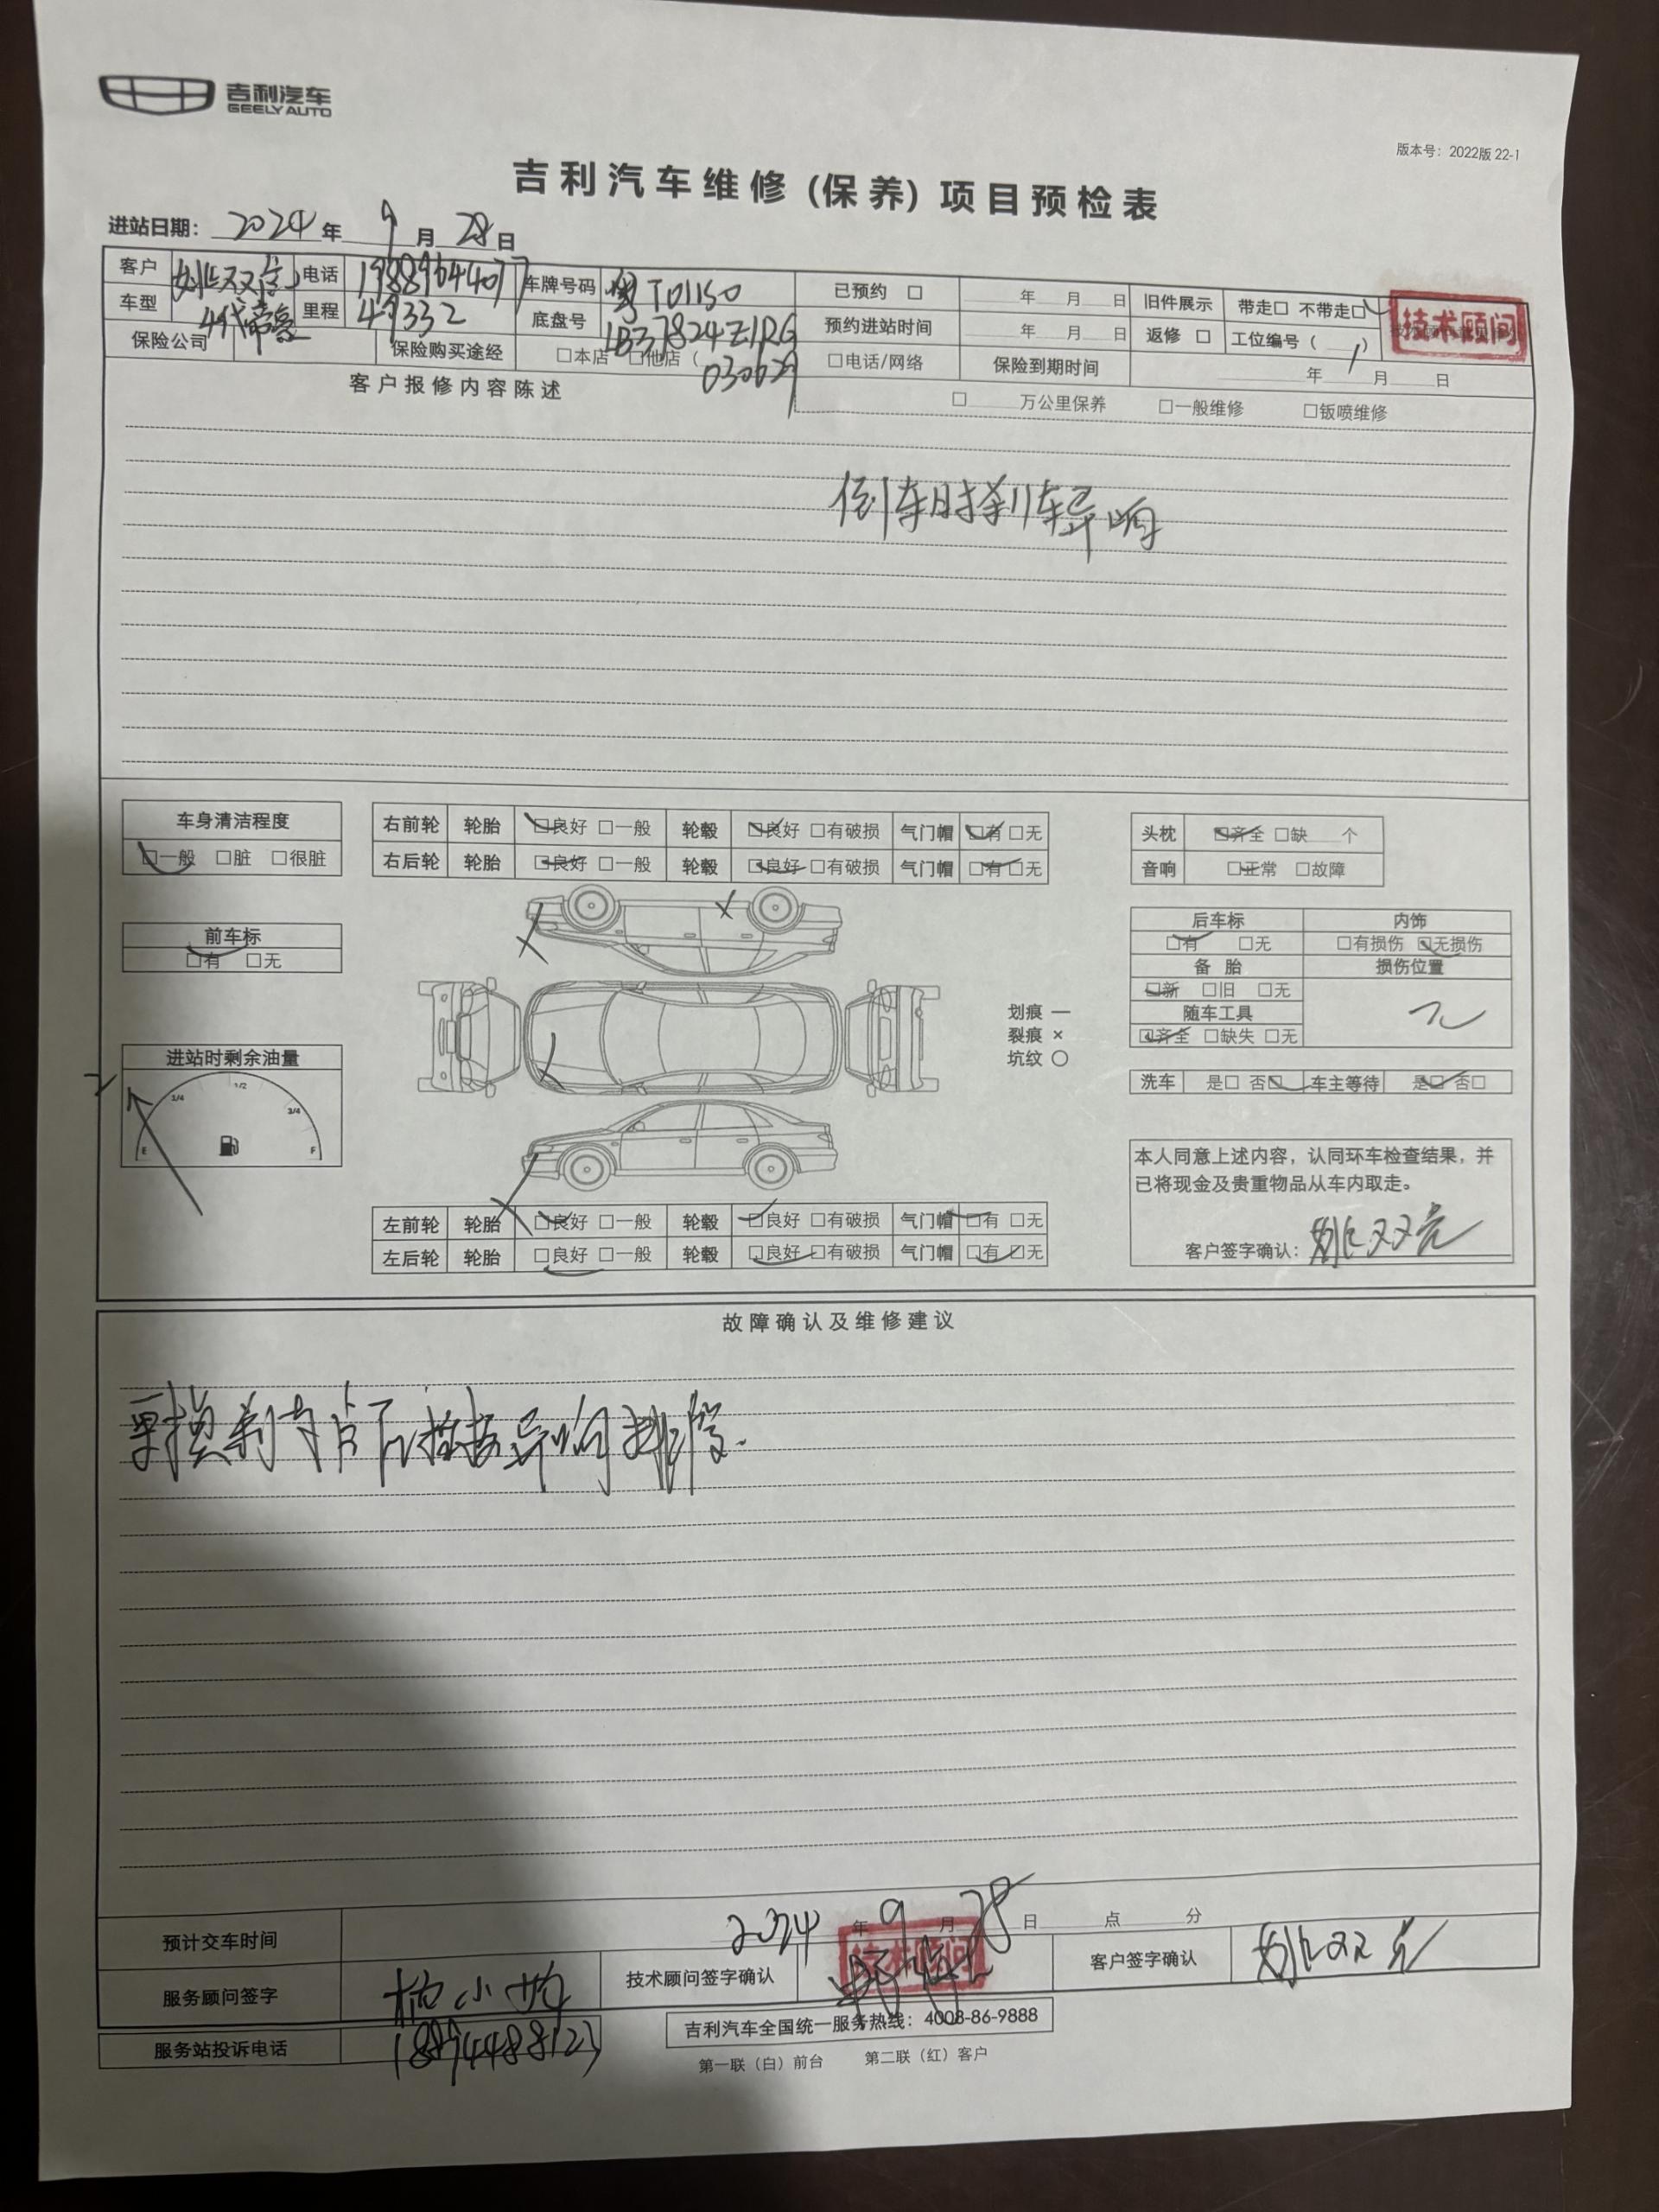 吉利汽车
GEELY AUTO
版本号：2022版 22-1
吉利汽车维修（保养）项目预检表
进站日期： 2024 年 9 月 28 日
客户 姚双亮 电话 19889644077 车牌号码 T01150 已预约 □ 年 月 日 旧件展示 带走□ 不带走□ 技术顾问
车型 4代帝豪 里程 49332 底盘号 LB37824Z1RG 030629 预约进站时间 年 月 日 返修 □ 工位编号（ 1 ）
保险公司 保险购买途经 □本店 □他店（ □电话/网络 保险到期时间 年 月 日
客户报修内容陈述 □ 万公里保养 □一般维修 □钣喷维修
倒车时刹车异响
车身清洁程度
□一般 □脏 □很脏
右前轮 轮胎 □良好 □一般 轮毂 □良好 □有破损 气门帽 □有 □无
右后轮 轮胎 □良好 □一般 轮毂 □良好 □有破损 气门帽 □有 □无
头枕 □齐全 □缺 个
音响 □正常 □故障
前车标
□有 □无
后车标 内饰
□有 □无 □有损伤 □无损伤
备 胎 损伤位置
□新 □旧 □无
随车工具 无
□齐全 □缺失 □无
划痕 —
裂痕 ×
坑纹 ○
进站时剩余油量
E 1/4 1/2 3/4 F
洗车 是□ 否□ 车主等待 是□ 否□
本人同意上述内容，认同环车检查结果，并
已将现金及贵重物品从车内取走。
客户签字确认： 姚双亮
左前轮 轮胎 □良好 □一般 轮毂 □良好 □有破损 气门帽 □有 □无
左后轮 轮胎 □良好 □一般 轮毂 □良好 □有破损 气门帽 □有 □无
故障确认及维修建议
更换刹车片 异响排除.
预计交车时间 2024 年 9 月 28 日 点 分
服务顾问签字 杨小 技术顾问签字确认 技术顾问 客户签字确认 姚双亮
服务站投诉电话 18894488123
吉利汽车全国统一服务热线：4008-86-9888
第一联（白）前台 第二联（红）客户